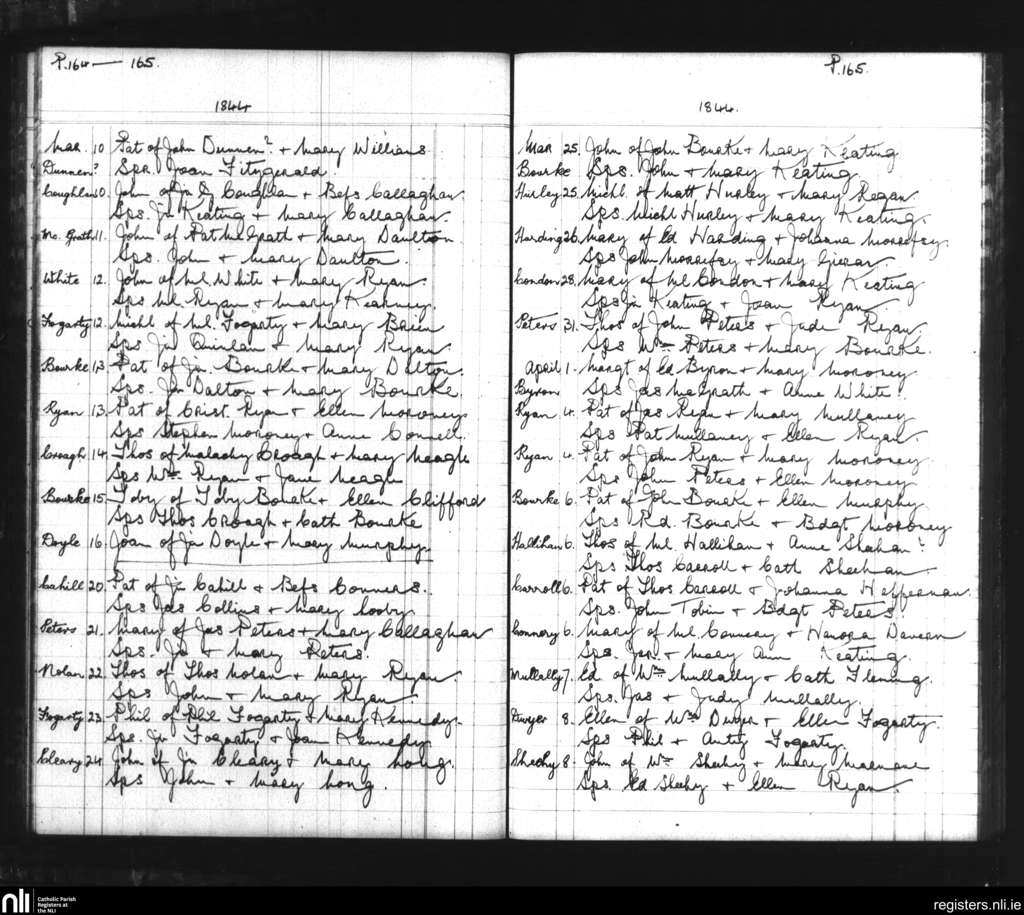 P.164 — 165.
1844
Mar. 10 Pat of John Dunnen? + Mary Williams
Dunnen? Spr. Joan Fitzgerald.
Coughlan 10. John of Jn Coughlan + Befs Callaghan
Sps. Jn Keating + Mary Callaghan.
Mc Grath 11. John of Pat McGrath + Mary Daulton
Sps. John + Mary Daulton.
White 12. John of Ml. White + Mary Ryan.
Sps Ml. Ryan + Mary Kearney.
Fogarty 12. Michl of Ml. Fogarty + Mary Brien
Sps Jn Quinlan + Mary Ryan.
Bourke 13 Pat of Jn Bourke + Mary Dalton.
Sps. Jn Dalton + Mary Bourke.
Ryan 13. Pat of Crist. Ryan + Ellen Moroney
Sps Stephen Moroney + Anne Connell.
Croagh 14. Thos of Malachy Croagh + Mary Meagh
Sps Wm. Ryan + Jane Meagh
Bourke 15. Toby of Toby Bourke + Ellen Clifford
Sps Thos Croagh + Cath Bourke
Doyle 16. Joan of Jn Doyle + Mary Murphy.
Cahill 20. Pat of Jn Cahill + Befs Conners.
Sps Jas Collins + Mary Looby.
Peters 21. Mary of Jas Peters + Mary Callaghan
Sps. Jn + Mary Peters.
Nolan 22. Thos of Thos Nolan + Mary Ryan.
Sps John + Mary Ryan.
Fogarty 23. Phil of Phil Fogarty + Mary Kennedy.
Sps. Jn Fogarty + Joan Kennedy
Cleary 24. John of Jn Cleary + Mary Long.
Sps John + Mary Long.
P.165.
1844.
Mar 25. John of John Bourke + Mary Keating
Bourke Sps. John + Mary Keating.
Hurley 25. Michl of Matt Hurley + Mary Regan
Sps. Michl Hurley + Mary Keating.
Harding 26. Mary of Ed Harding + Johanna Morrefsey.
Sps John Morrefsey + Mary
Condon 28. Mary of Ml Condon + Mary Keating
Sps Jn Keating + Joan Ryan.
Peters 31. Thos of John Peters + Jude Ryan
Sps Wm Peters + Mary Bourke.
April 1. Margt of Ed Byron + Mary Moroney
Byron Sps Jas McGrath + Anne White.
Ryan 4. Pat of Jas Ryan + Mary Mullaney
Sps Pat Mullaney + Ellen Ryan.
Ryan 4. Pat of John Ryan + Mary Moroney.
Sps John Peters + Ellen Moroney
Bourke 6. Pat of John Bourke + Ellen Murphy.
Sps Rd. Bourke + Bdgt Moroney
Hallihan 6. Thos of Ml. Hallihan + Anne Sheehan?
Sps Thos Carroll + Cath Sheehan.
Carroll 6. Pat of Thos Carroll + Johanna Heffernan.
Sps. John Tobin + Bdgt Peters.
Connery 6. Mary of Ml. Connery + Hanora Davern
Sps. + Mary Ann Keating.
Mullally 7. Ed of Wm Mullally + Cath Fleming.
Sps. Jas + Judy Mullally.
Dwyer 8. Ellen of Wm Dwyer + Ellen Fogarty.
Sps Phil + Antty Fogarty.
Sheehy 8. John of Wm Sheehy + Mary
Sps. Ed Sheehy + Ellen Ryan.
nli Catholic Parish Registers at the NLI
registers.nli.ie